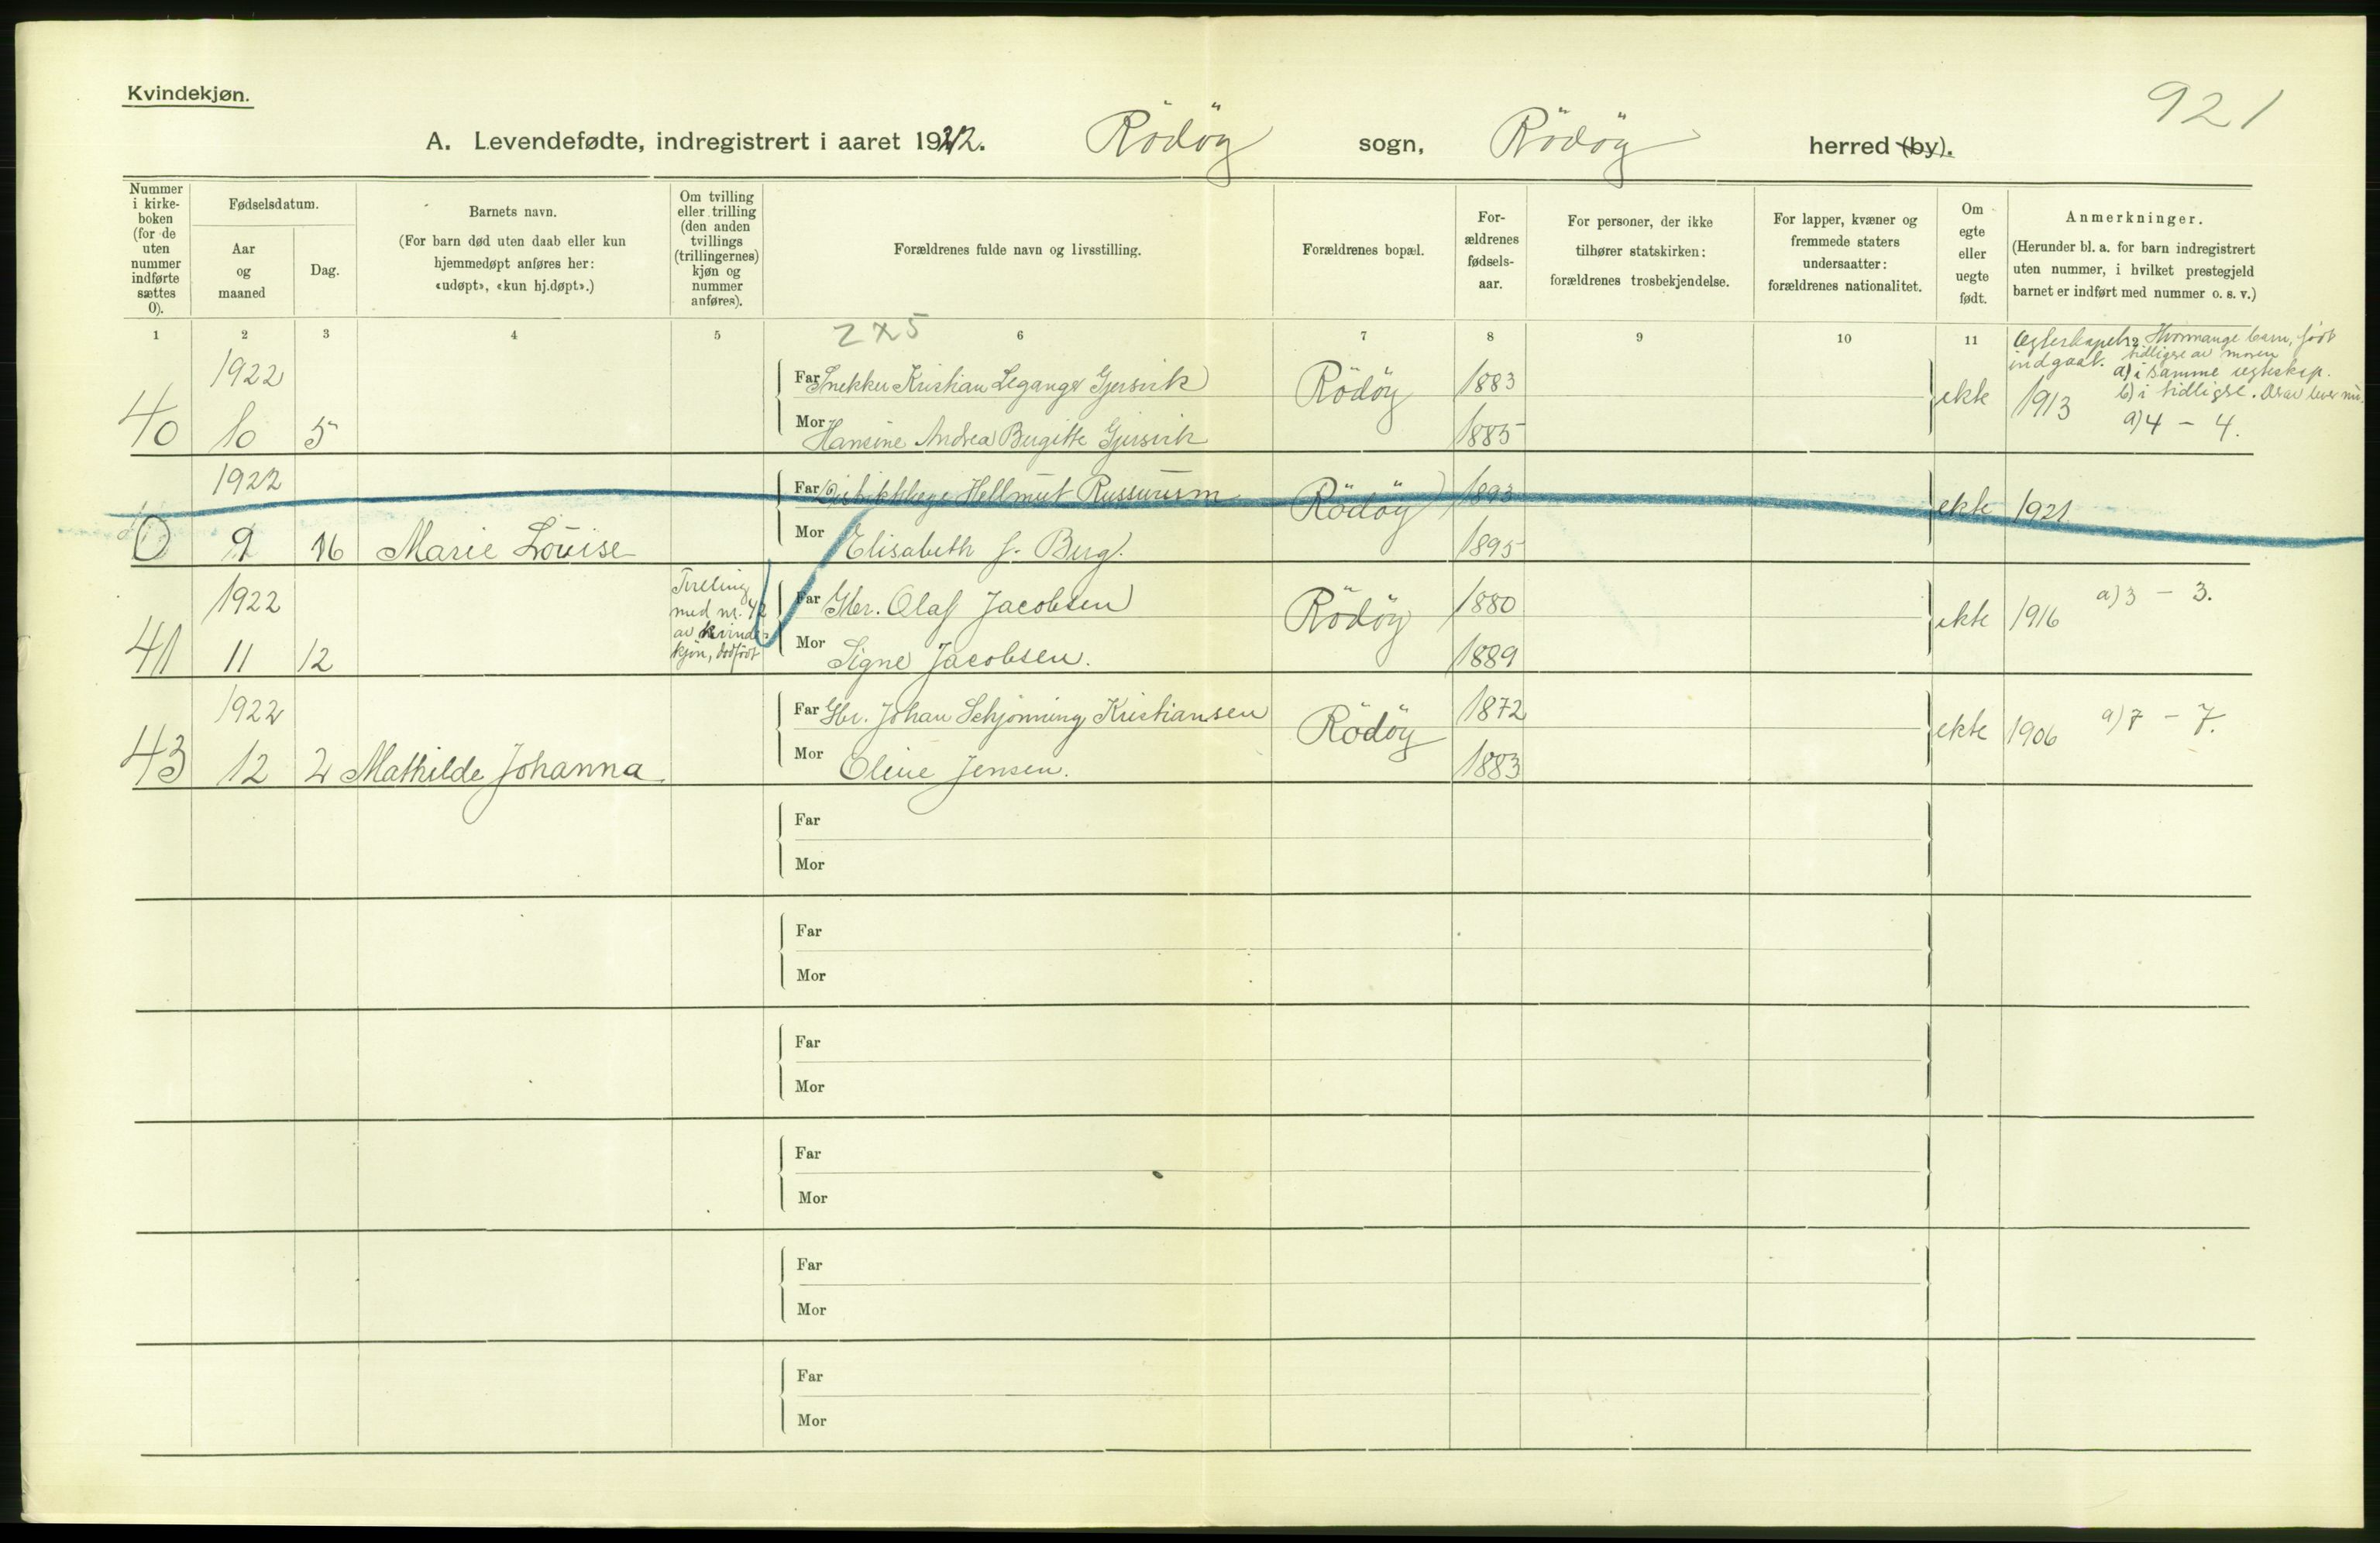 Kvindekjøn.
921
A. Levendefødte, indregistrert i aaret 1922. Rödöy sogn, Rödöy herred (by).
Nummer i kirke-boken (for de uten nummer indførte sættes 0).
Fødselsdatum.
Aar og maaned
Dag.
Barnets navn.
(For barn død uten daab eller kun hjemmedøpt anføres her: «udøpt», «kun hj.døpt».)
Om tvilling eller trilling (den anden tvillings (trillingernes) kjøn og nummer anføres).
Forældrenes fulde navn og livsstilling.
Forældrenes bopæl.
For-ældrenes fødsels-aar.
For personer, der ikke tilhører statskirken: forældrenes trosbekjendelse.
For lapper, kvæner og fremmede staters undersaatter: forældrenes nationalitet.
Om egte eller uegte født.
Anmerkninger.
(Herunder bl. a. for barn indregistrert uten nummer, i hvilket prestegjeld barnet er indført med nummer o. s. v.)
1 2 3 4 5 6 7 8 9 10 11
2 x 5
Hvormange barn, født tidligere av moren
indgaat.
a) i samme egteskap.
b) i tidligere. Derav lever nu.
40 1922 10 5
Far Snekker Kristian Legange Gjersvik Rödöy 1883 ekte 1913 a) 4 - 4.
Mor Hansine Andrea Bergitte Gjersvik 1885
0 1922 9 16 Marie Louise
Far Distriktslæge Hellmut Russwurm Rödöy 1893 ekte 1921
Mor Elisabeth f. Berg. 1895
41 1922 11 12
Tvilling med nr. 42 av kvinde-kjøn, dødfødt
Far Gbr. Olaf Jacobsen Rödöy 1880 ekte 1916 a) 3 - 3.
Mor Signe Jacobsen. 1889
43 1922 12 2 Mathilde Johanna
Far Gbr. Johan Schjönning Kristiansen Rödöy 1872 ekte 1906 a) 7 - 7.
Mor Oline Jensen. 1883
Far
Mor
Far
Mor
Far
Mor
Far
Mor
Far
Mor
Far
Mor